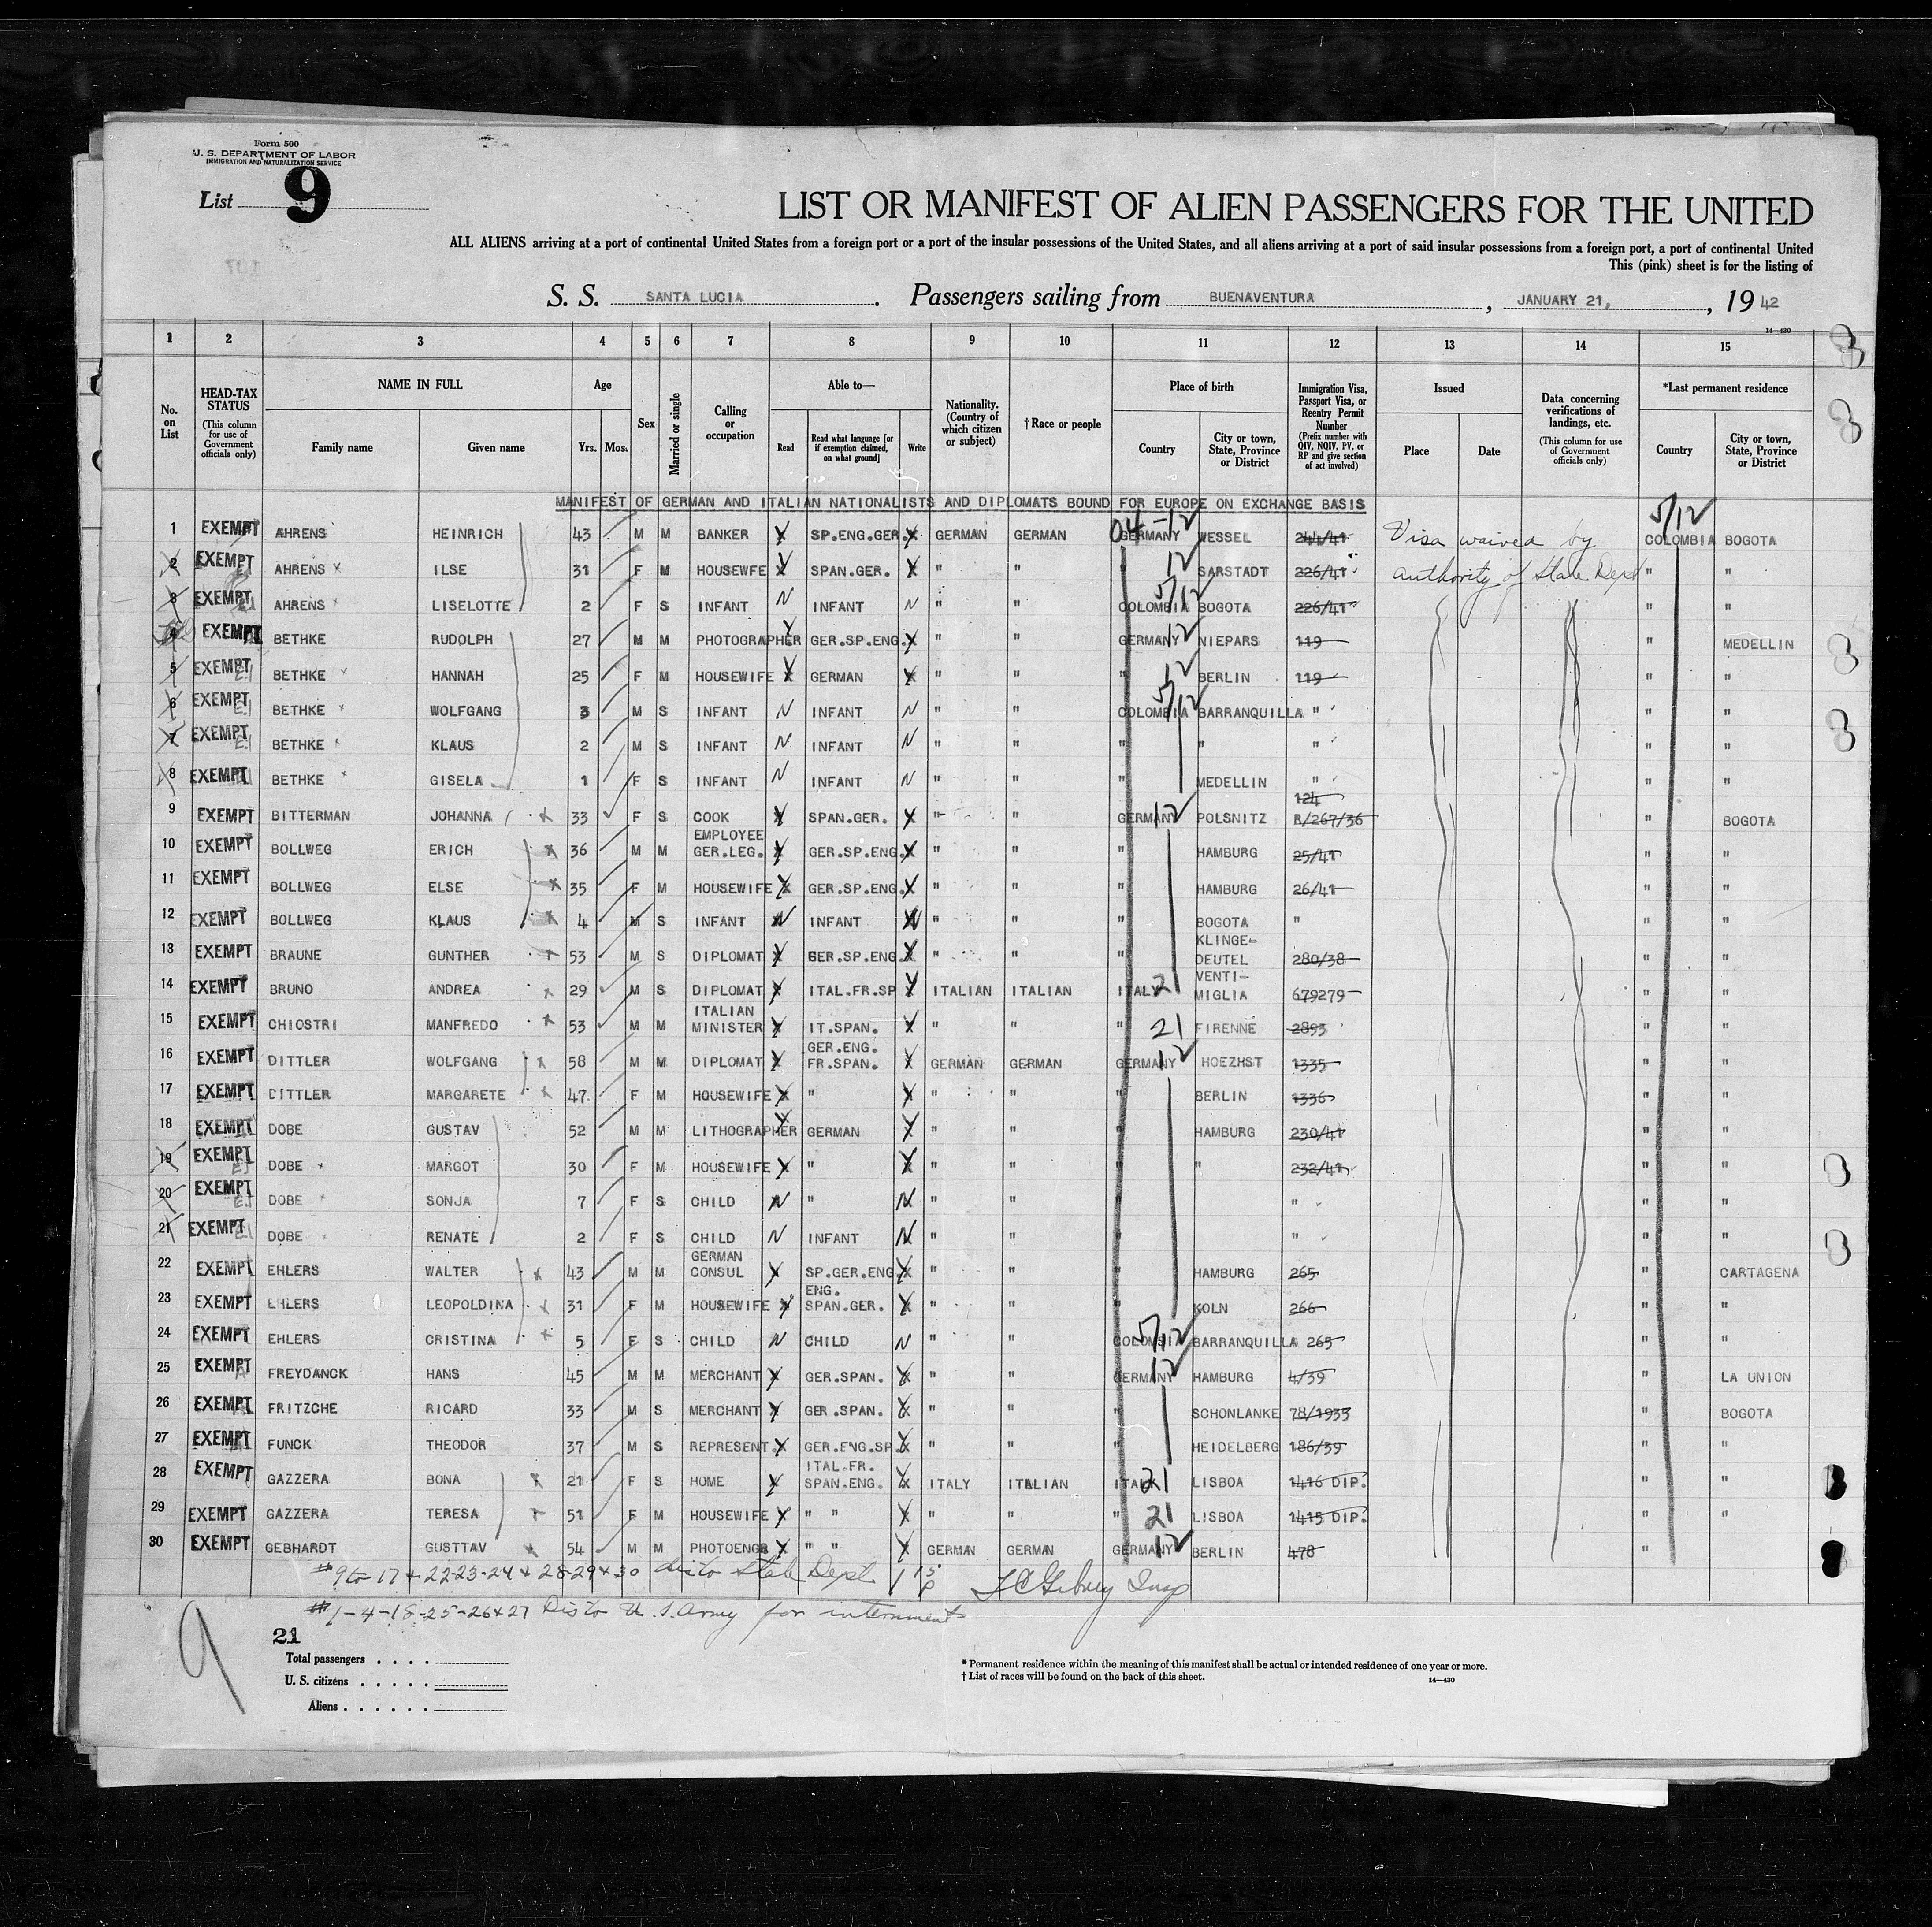 Form 500
U. S. DEPARTMENT OF LABOR
IMMIGRATION AND NATURALIZATION SERVICE
List 9
LIST OR MANIFEST OF ALIEN PASSENGERS FOR THE UNITED
ALL ALIENS arriving at a port of continental United States from a foreign port or a port of the insular possessions of the United States, and all aliens arriving at a port of said insular possessions from a foreign port, a port of continental United
This (pink) sheet is for the listing of
S. S. SANTA LUCIA. Passengers sailing from BUENAVENTURA, JANUARY 21, 1942
14—430
1 2 3 4 5 6 7 8 9 10 11 12 13 14 15
No. on List
HEAD-TAX STATUS (This column for use of Government officials only)
NAME IN FULL Family name Given name
Age Yrs. Mos.
Sex
Married or single
Calling or occupation
Able to— Read Read what language [or if exemption claimed, on what ground] Write
Nationality. (Country of which citizen or subject)
†Race or people
Place of birth Country City or town, State, Province or District
Immigration Visa, Passport Visa, or Reentry Permit Number (Prefix number with QIV, NQIV, PV, or RP and give section of act involved)
Issued Place Date
Data concerning verifications of landings, etc. (This column for use of Government officials only)
*Last permanent residence Country City or town, State, Province or District
MANIFEST OF GERMAN AND ITALIAN NATIONALISTS AND DIPLOMATS BOUND FOR EUROPE ON EXCHANGE BASIS
04-12 5/12
1 EXEMPT AHRENS HEINRICH 43 M M BANKER Y SP.ENG.GER. Y GERMAN GERMAN GERMANY WESSEL 244/41 Visa waived by COLOMBIA BOGOTA
2 EXEMPT AHRENS ILSE 31 F M HOUSEWFE Y SPAN.GER. Y " " " 12 SARSTADT 226/41 authority of State Dept " "
3 EXEMPT AHRENS LISELOTTE 2 F S INFANT N INFANT N " " COLOMBIA 5/12 BOGOTA 226/41 " "
4 EXEMPT BETHKE RUDOLPH 27 M M PHOTOGRAPHER Y GER.SP.ENG. Y " " GERMANY 12 NIEPARS 119 " MEDELLIN
5 EXEMPT BETHKE HANNAH 25 F M HOUSEWIFE Y GERMAN Y " " " 12 BERLIN 119 " "
6 EXEMPT BETHKE WOLFGANG 3 M S INFANT N INFANT N " " COLOMBIA 5/12 BARRANQUILLA " " "
7 EXEMPT BETHKE KLAUS 2 M S INFANT N INFANT N " " " " " " "
8 EXEMPT BETHKE GISELA 1 F S INFANT N INFANT N " " " MEDELLIN " " "
9 EXEMPT BITTERMAN JOHANNA 33 F S COOK Y SPAN.GER. Y " " GERMANY 12 POLSNITZ 124 R/267/36 " BOGOTA
10 EXEMPT BOLLWEG ERICH 36 M M EMPLOYEE GER.LEG. Y GER.SP.ENG. Y " " " HAMBURG 25/41 " "
11 EXEMPT BOLLWEG ELSE 35 F M HOUSEWIFE Y GER.SP.ENG. Y " " " HAMBURG 26/41 " "
12 EXEMPT BOLLWEG KLAUS 4 M S INFANT N INFANT N " " " BOGOTA " " "
13 EXEMPT BRAUNE GUNTHER 53 M S DIPLOMAT Y GER.SP.ENG. Y " " " KLINGE-DEUTEL 280/38 " "
14 EXEMPT BRUNO ANDREA 29 M S DIPLOMAT Y ITAL.FR.SP Y ITALIAN ITALIAN ITALY 21 VENTI-MIGLIA 679279 " "
15 EXEMPT CHIOSTRI MANFREDO 53 M M ITALIAN MINISTER Y IT.SPAN. Y " " " 21 FIRENNE 2893 " "
16 EXEMPT DITTLER WOLFGANG 58 M M DIPLOMAT Y GER.ENG. FR.SPAN. Y GERMAN GERMAN GERMANY 12 HOEZHST 1335 " "
17 EXEMPT DITTLER MARGARETE 47 F M HOUSEWIFE Y " Y " " " BERLIN 1336 " "
18 EXEMPT DOBE GUSTAV 52 M M LITHOGRAPHER Y GERMAN Y " " " HAMBURG 230/41 " "
19 EXEMPT DOBE MARGOT 30 F M HOUSEWIFE Y " Y " " " " 232/41 " "
20 EXEMPT DOBE SONJA 7 F S CHILD N " N " " " " " "
21 EXEMPT DOBE RENATE 2 F S CHILD N INFANT N " " " " " "
22 EXEMPT EHLERS WALTER 43 M M GERMAN CONSUL Y SP.GER.ENG Y " " " HAMBURG 265 " CARTAGENA
23 EXEMPT EHLERS LEOPOLDINA 31 F M HOUSEWIFE Y ENG. SPAN.GER. Y " " " KOLN 266 " "
24 EXEMPT EHLERS CRISTINA 5 F S CHILD N CHILD N " " COLOMBIA 5/12 BARRANQUILLA 265 " "
25 EXEMPT FREYDANCK HANS 45 M M MERCHANT Y GER.SPAN. Y " " GERMANY 12 HAMBURG 4/39 " LA UNION
26 EXEMPT FRITZCHE RICARD 33 M S MERCHANT Y GER.SPAN. Y " " " SCHONLANKE 78/1935 " BOGOTA
27 EXEMPT FUNCK THEODOR 37 M S REPRESENT. Y GER.ENG.SP. Y " " " HEIDELBERG 186/39 " "
28 EXEMPT GAZZERA BONA 21 F S HOME Y ITAL.FR. SPAN.ENG. Y ITALY ITALIAN ITALY 21 LISBOA 1416 DIP. " "
29 EXEMPT GAZZERA TERESA 51 F M HOUSEWIFE Y " " Y " " " 21 LISBOA 1415 DIP. " "
30 EXEMPT GEBHARDT GUSTTAV 54 M M PHOTOENGR Y " " Y GERMAN GERMAN GERMANY 12 BERLIN 478 "
#9 to 17 + 22-23-24 + 28-29+30 dis to State Dept
#1-4-18-25-26+27 Dis to U.S. Army for internment
9
21
Total passengers
U. S. citizens
Aliens
* Permanent residence within the meaning of this manifest shall be actual or intended residence of one year or more.
† List of races will be found on the back of this sheet.
14—430